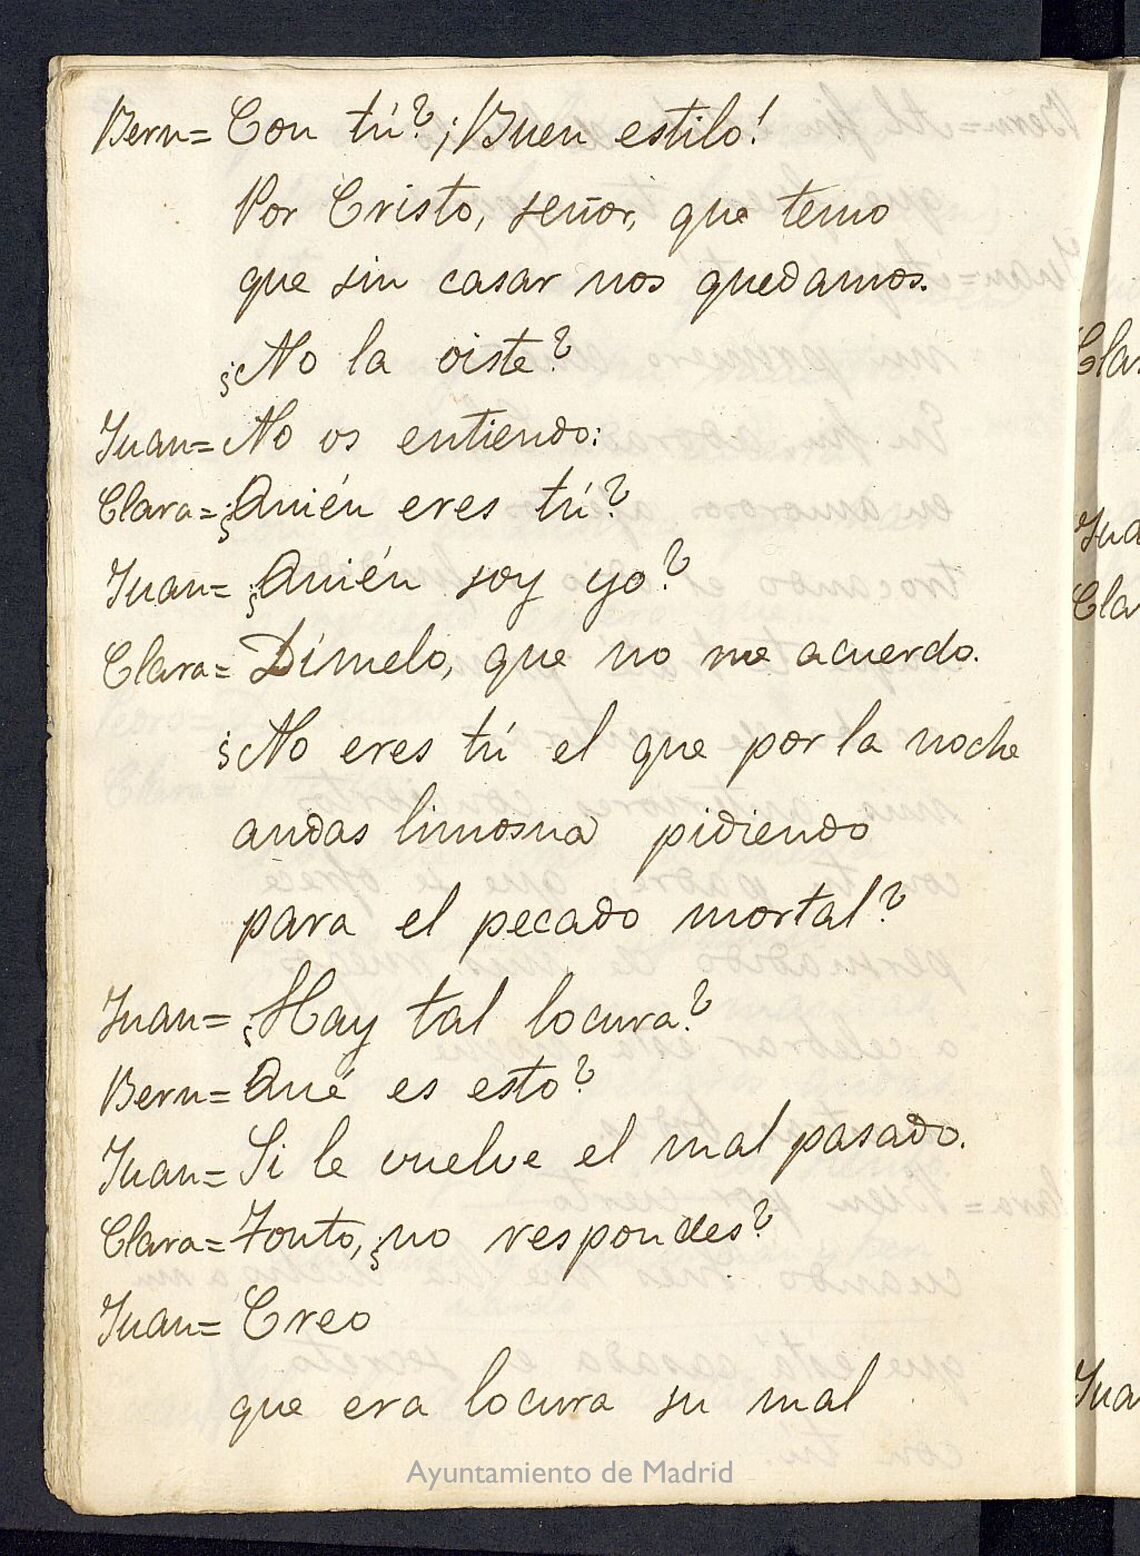 Bern= Con tú? ¡Buen estilo!
Por Cristo, señor, que temo
que sin casar nos quedamos.
¿No la oiste?
Juan= No os entiendo:
Clara= ¿Quién eres tú?
Juan= ¿Quién soy yo?
Clara= Dímelo, que no me acuerdo.
¿No eres tú el que por la noche
andas limosna pidiendo
para el pecado mortal?
Juan= ¿Hay tal locura?
Bern= Qué es esto?
Juan= Si le vuelve el mal pasado.
Clara= Tonto, ¿no respondes?
Juan= Creo
que era locura su mal
Ayuntamiento de Madrid
Cla
Jua
Cla
Jua